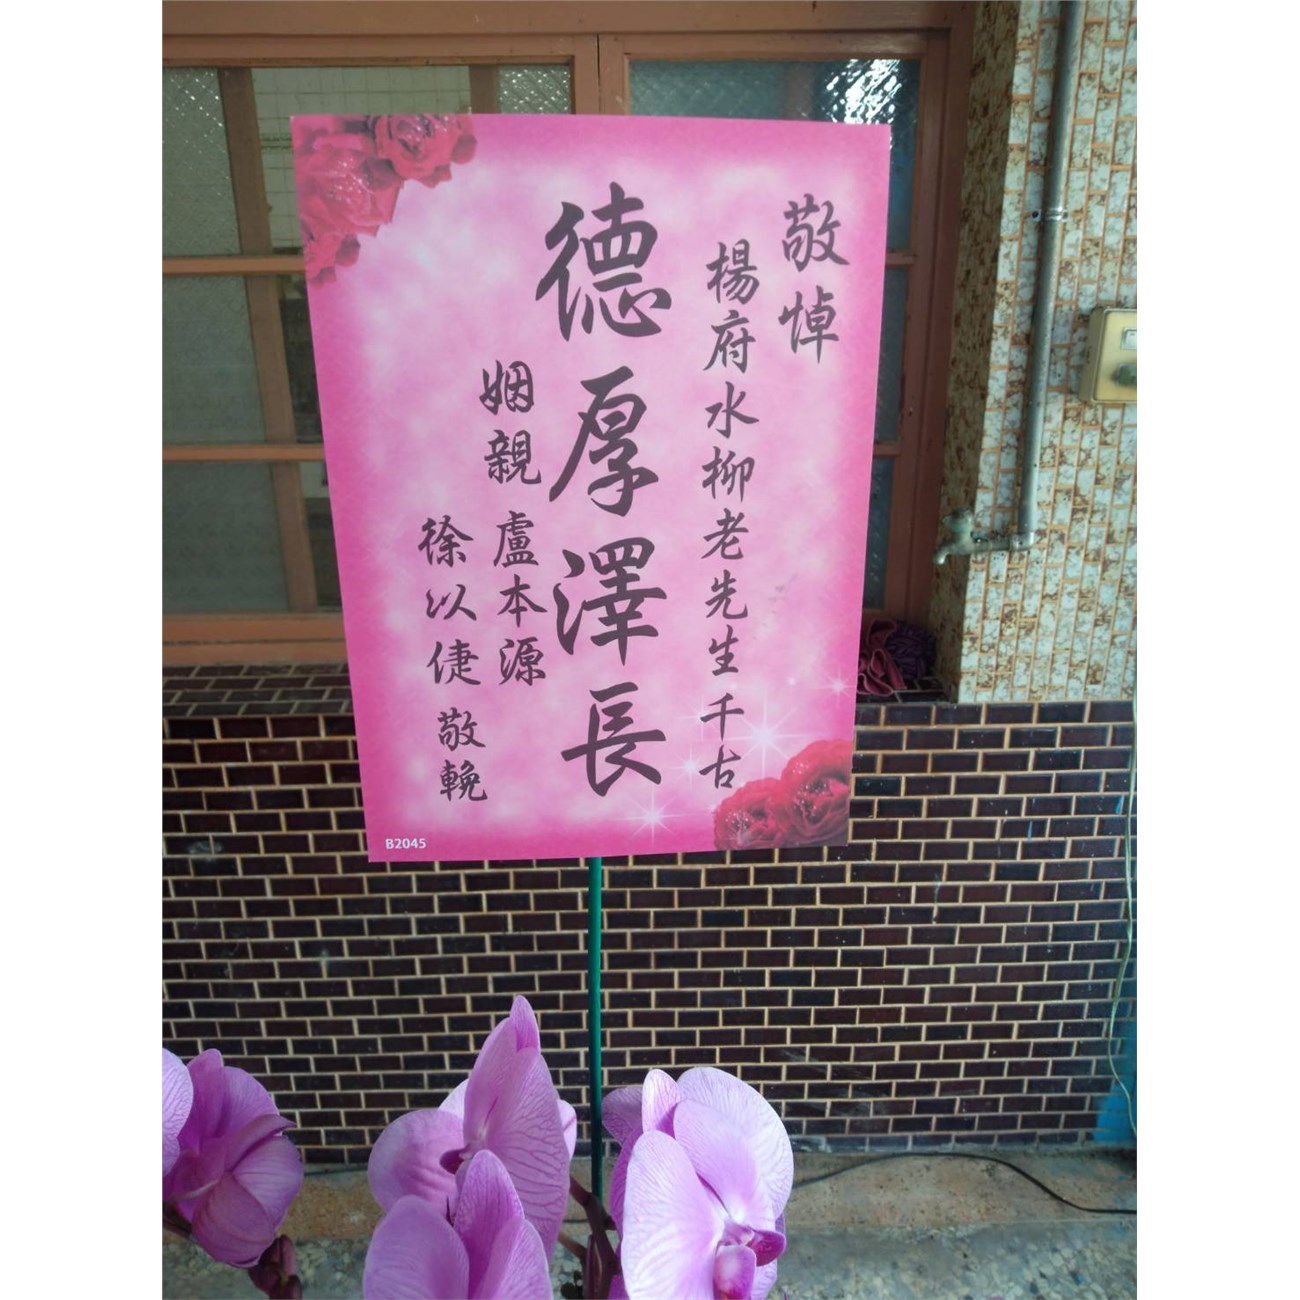 敬悼
楊府水柳老先生千古
德厚澤長
姻親 盧本源
徐以倢 敬輓
B2045